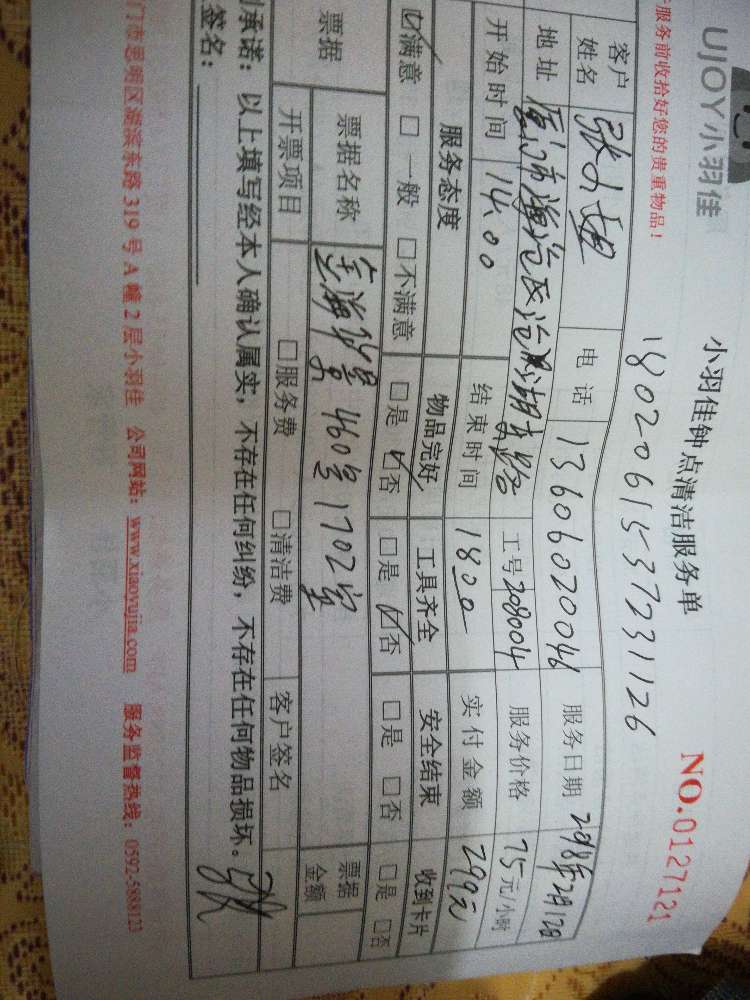 UJOY小羽佳
小羽佳钟点清洁服务单
NO.0127121
服务前收拾好您的贵重物品！
1802061537231126
客户姓名 张小姐 电话 13606020046 服务日期 2018年2月12日
地址 厦门市海沧区沧湖东路 工号 208004 服务价格 75元/小时
开始时间 14:00 结束时间 1800 实付金额 299元
服务态度 物品完好 工具齐全 安全结束 收到卡片
☑满意 □一般 □不满意 □是 ☑否 □是 ☑否 □是 □否 □是 □否
票据 票据名称 460号1702室 票据金额
开票项目 □服务费 □清洁费 客户签名
承诺：以上填写经本人确认属实，不存在任何纠纷，不存在任何物品损坏。
签名：
门市思明区湖滨东路319号A幢2层小羽佳 公司网站：www.xiaoyujia.com 服务监督热线：0592-5888123